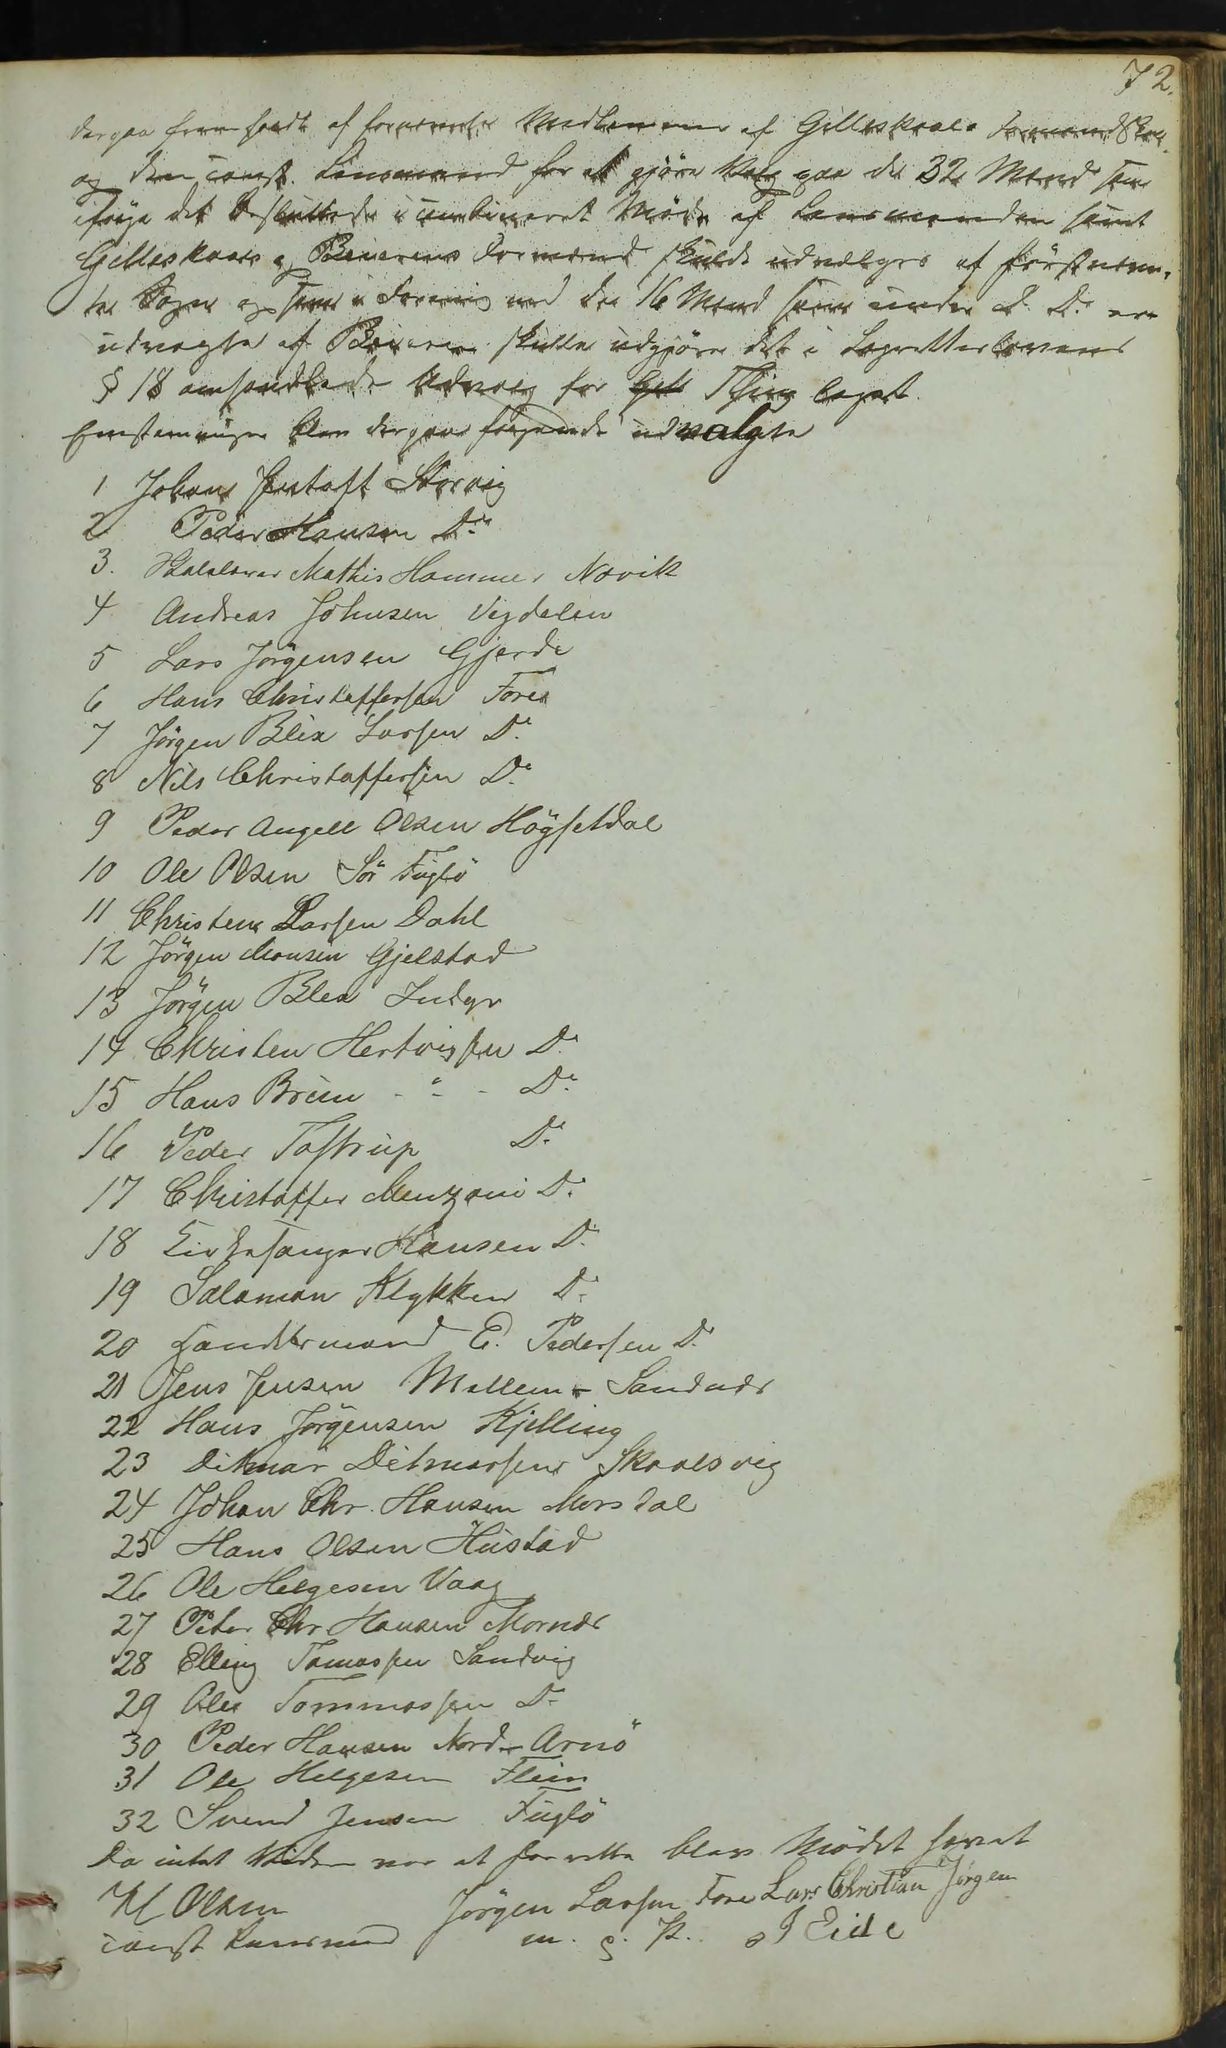 72.
af Medlemmer af Gilleskaals Formandskab
og den const. Lensmand for at gjöre Valg paa de 32 Mænd som
ifölge det besluttede i combineret Möde af Lensmanden samt
Gilleskaals og Beierens Formænd skulde udvælges af förstnævn-
te Sogn og som i Forening med de 16 Mænd som under D. D. ere
udvagte af Beieren skulle udgjöre det i Lagrettelovens
§ 18 omhandlede Udvalg for Thinglaget.
Eenstemmigen blev derpaa fölgende udvalgte
1 Johan Jentoft Storvig
2 Peder Hansen Do
3. Skolelærer Mathis Hammer Novik
4 Andreas Johnsen Vegdalen
5 Lars Jörgensen Gjerde
6 Hans Christoffersen Fore
7 Jörgen Blix Larsen Do
8 Nils Christoffersen Do
9 Peder Angell Olsen Högsetdal
10 Ole Olsen Sör Fuglö
11 Christen Larsen Dahl
12 Jörgen Monsen Gjelstad
13 Jörgen Blix Indyr
14 Christen Hertvigsen Do
15 Hans Bruun - " - Do
16 Peder Tostrup Do
17 Christoffer Menzoni Do
18 Kirkesanger Hansen Do
19 Salamon Klykken Do
20 Handelsmand E. Pedersen Do
21 Jens Jensen Mellem-Sandnæs
22 Hans Jörgensen Kjelling
23 Ditmar Ditmarsen Skaalsvig
24 Johan Chr. Hansen Morsdal
25 Hans Olsen Hustad
26 Ole Helgesen Vaag
27 Peter Chr Hansen Mornæs
28 Elling Tomassen Sandvig
29 Ole Tommassen Do
30 Peder Hansen Nord-Arnö
31 Ole Helgesen Flein
32 Svend Jensen Fuglö
Da intet videre var at forrette blev Mödet hævet
Olsen Jörgen Larsen Fore Lars Christian Jørgen
const Lensmand m. p. P. Eide